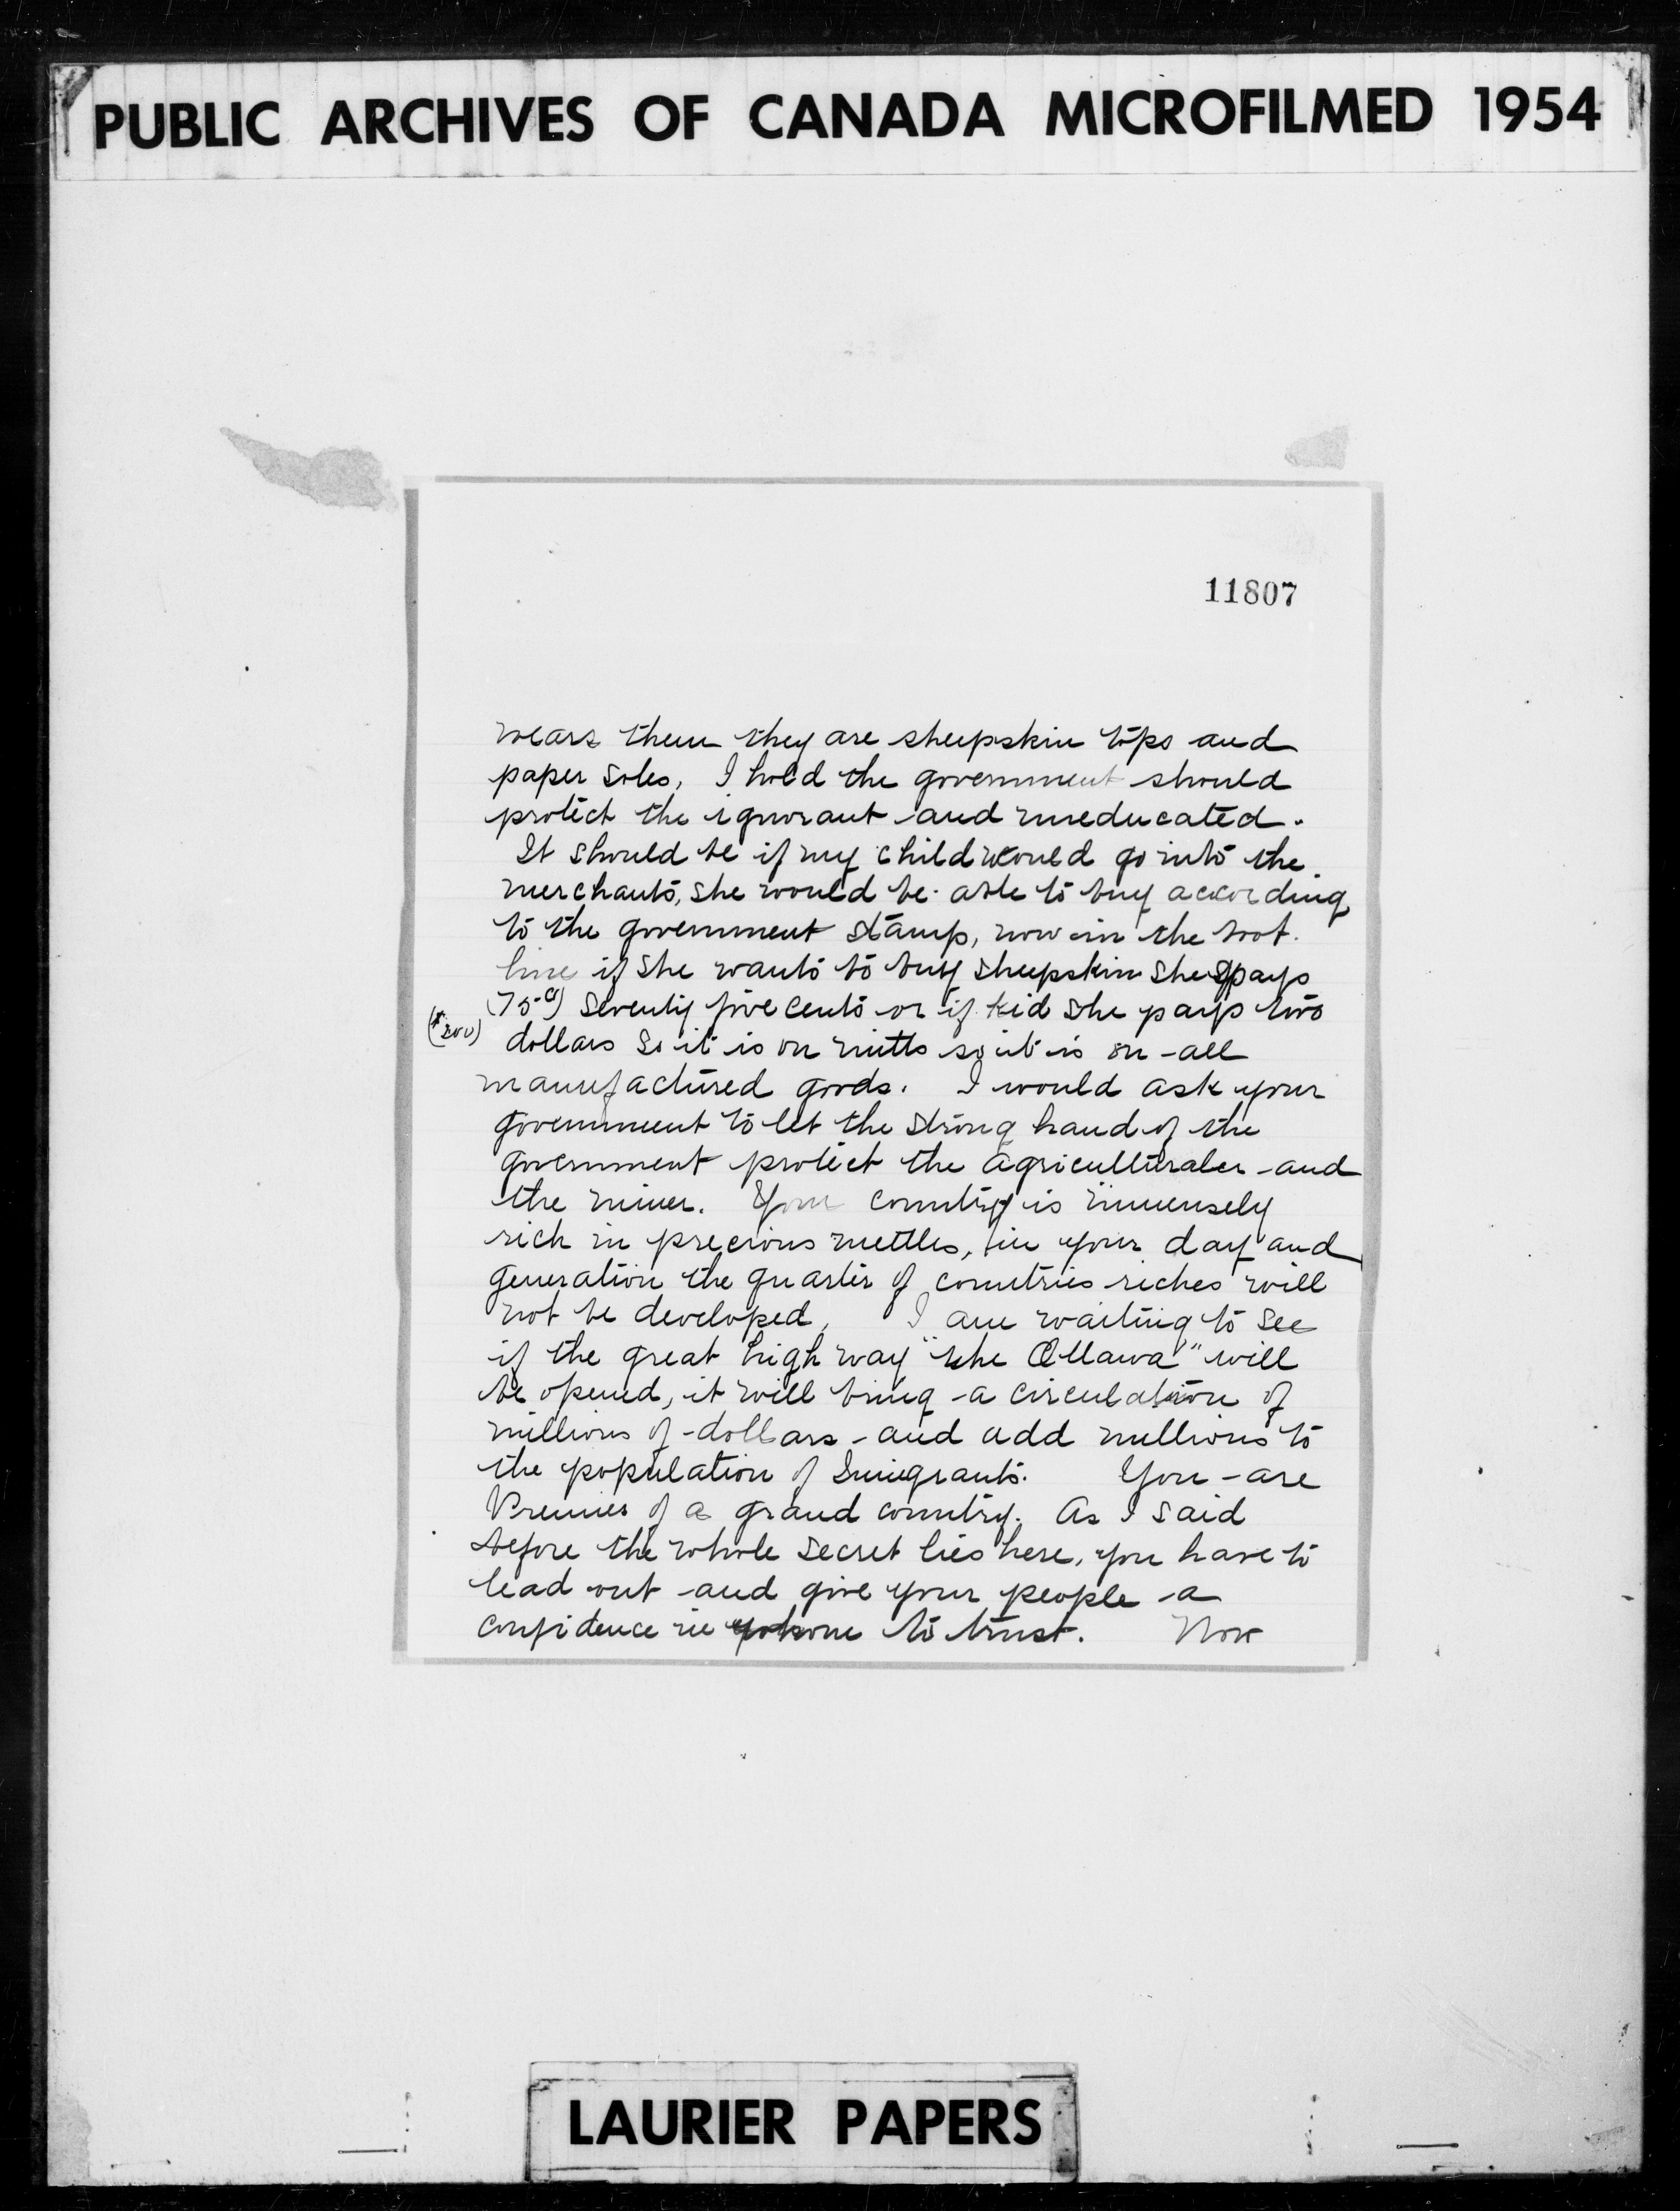 PUBLIC ARCHIVES OF CANADA MICROFILMED 1954
11807
wears them they are sheepskin tops and
paper soles, I hold the government should
protect the ignorant and uneducated.
It should be if my child would go into the
merchants, she would be able to buy according
to the government stamp, now in the boot
line if she wants to buy sheepskin she pays
(75c) seventy five cents or if kid she pays two
($200) dollars so it is on mitts so it is on all
manufactured goods. I would ask your
government to let the strong hand of the
government protect the agriculturaler and
the miner. Your country is immensely
rich in precious mettles, in your day and
generation the quarter of countries riches will
not be developed, I am waiting to see
if the great high way "the Ottawa" will
be opened, it will bring a circulation of
millions of dollars and add millions to
the population of Imigrants. You are
Premier of a grand country. As I said
before the whole secret lies here, you have to
lead out and give your people a
confidence in whom to trust. Now
LAURIER PAPERS